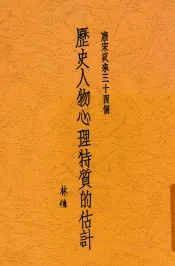 唐宋以來三十四個
歷史人物心理特質的估計
林傳